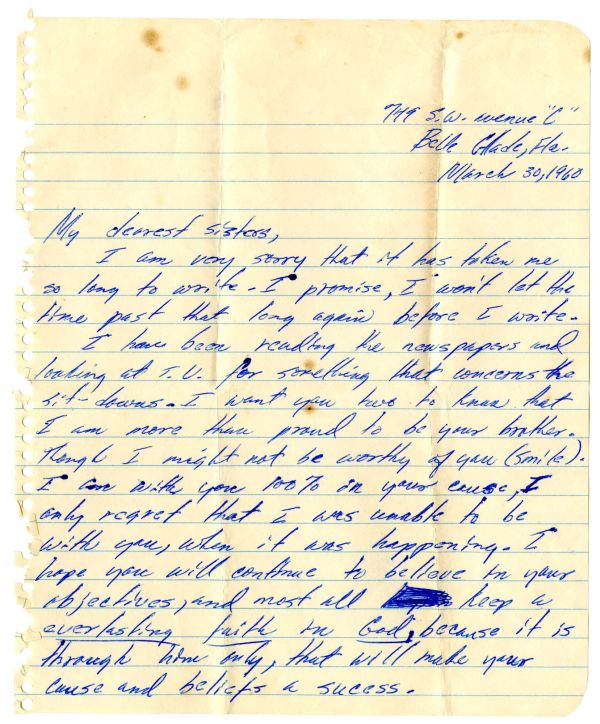 749 S.W. avenue "C"
Belle Glade, Fla.
March 30, 1960
My dearest sisters,
I am very sorry that it has taken me
so long to write. I promise, I won't let the
time past that long again before I write.
I have been reading the newspapers and
looking at T.V. for something that concerns the
sit-downs. I want you two to know that
I am more than proud to be your brother.
Though I might not be worthy of you (smile).
I am with you 100% in your cause, I
only regret that I was unable to be
with you, when it was happening. I
hope you will continue to believe in your
objectives, and most all keep a
everlasting faith in God, because it is
through him only, that will make your
cause and beliefs a sucess.